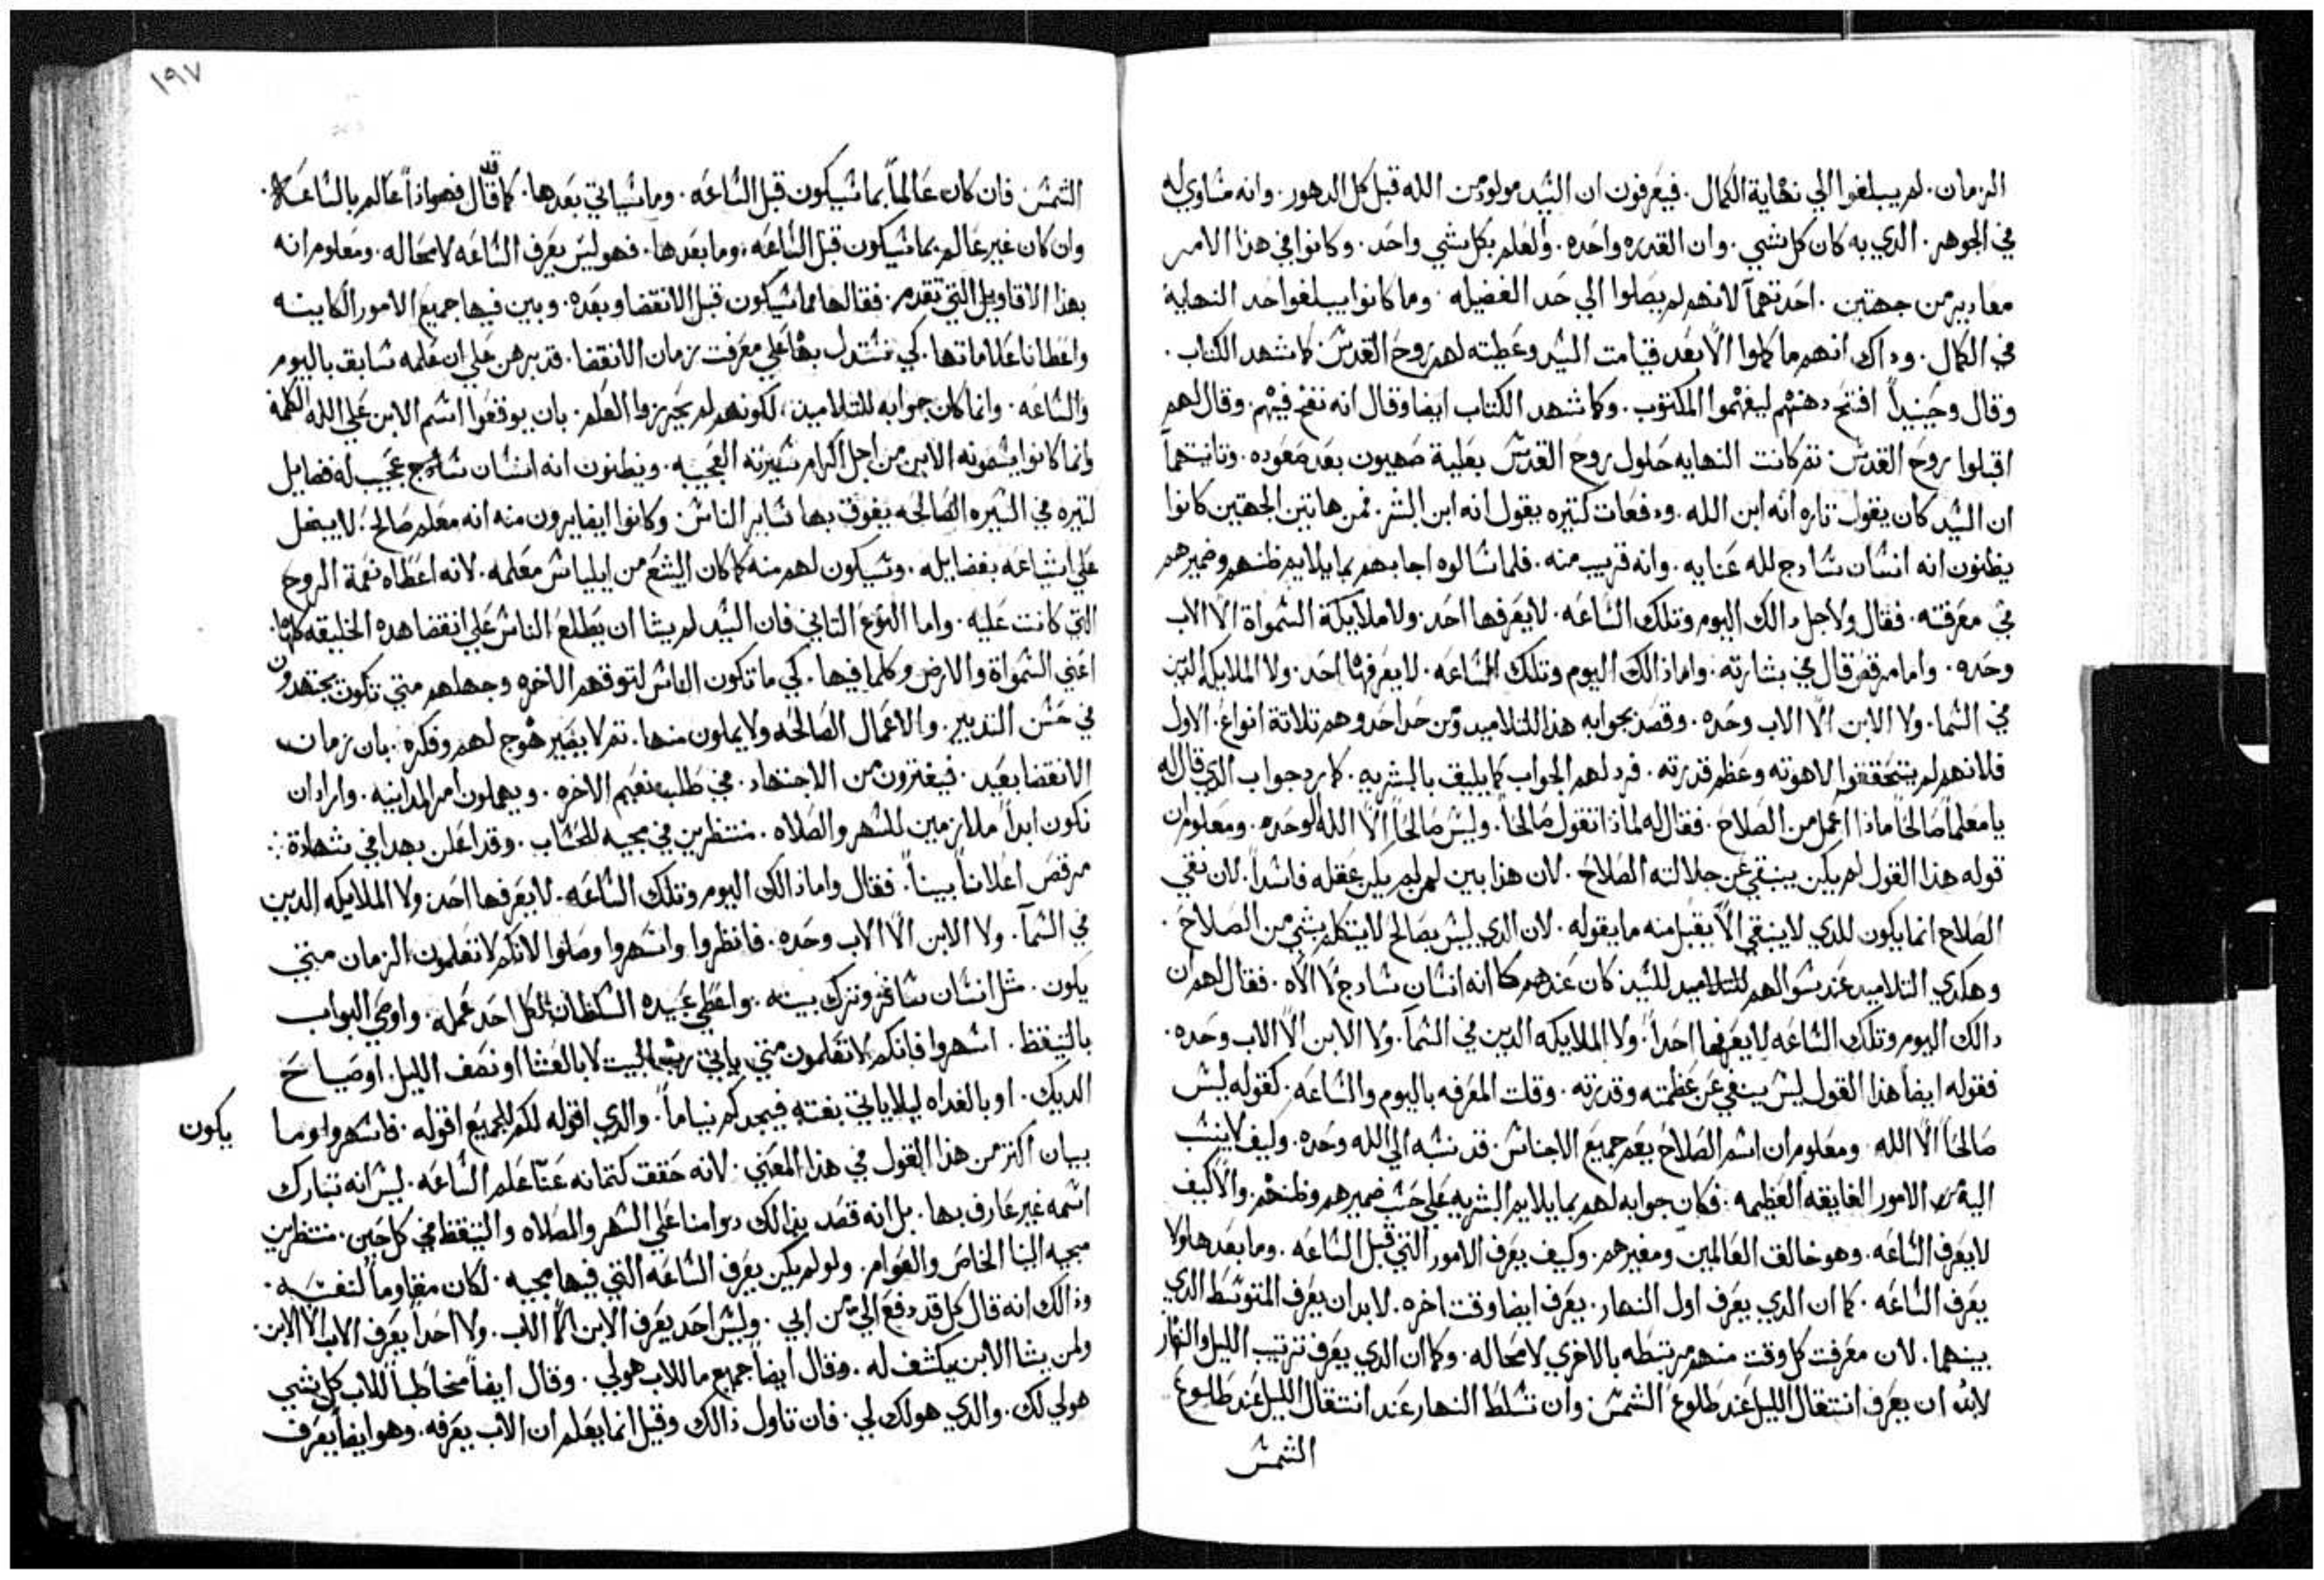 الزمان. لم يبلغوا الي نهاية الكمال. فيعرفون ان السيد مولود من الله قبل كل الدهور. وانه مساوي له
في الجوهر. الدي به كان كل شي. وان القدره واحده. والعلم بكل شي واحد. وكانوا في هذا الامر
معادير من جهتين. احدتهما لانهم لم يصلوا الي حد الفضيله. وما كانوا يبلغوا حد النهاية
في الكمال. وداك انهم ما كملوا الا بعد قيامت السيد وعطيته لهم روح القدس كما شهد الكتاب.
وقال وحينيداً افتح دهنهم ليفهموا المكتوب. وكما شهد الكتاب ايضا وقال انه نفخ فيهم. وقال لهم
اقبلوا روح القدس. تم كانت النهايه حلول روح القدس بعلية صهيون بعد صعوده. وتانيتهما
ان السيد كان يقول تاره انه ابن الله. ودفعات كتيره يقول انه ابن البشر. فمن هاتين الجهتين كانوا
يظنون انه انسان سادج لله عنايه. وانه قريب منه. فلما سالوه اجابهم بما يلايم ظنهم وضميرهم
في معرفته. فقال ولاجل دالك اليوم وتلك الساعه. لا يعرفها احد. ولا ملايكة السمواة الا الاب
وحده. واما مرقص قال في بشارته. واما ذالك اليوم وتلك الساعه. لا يعرفها احد. ولا الملايكه الدين
في السما. ولا الابن الا الاب وحده. وقصد بجوابه هذا للتلاميد ومن حد احد وهم تلاتة انواع. الاول
فلانهم لم يتحققوا لاهوته وعظم قدرته. فرد لهم الجواب كما يليق بالبشريه. كما رد جواب الدي قال له
يا معلماً صالحاً ماذا اعمل من الصلاح. فقال له لماذا تقول صالحاً. وليس صالحاً الا الله لوحده. ومعلوم ان
قوله هذا القول لم يكن ينفي عن جلالته الصلاح. لان هذا بين لمن لم يكن عقله فاسداً. لان نفي
الصلاح انما يكون للدي لا ينبغي الا يقبل منه ما يقوله. لان الدي ليس بصالح لا يتكلم بشي من الصلاح.
وهكدي التلاميد عند سوالهم للتلاميد للسيد كان عندهم كما انه انسان سادج لا الاه. فقال لهم ان
دالك اليوم وتلك الساعه لا يعرفها احداً. ولا الملايكه الدين في السما. ولا الابن الا الاب وحده.
فقوله ايضاً هذا القول ليس ينفي عن عظمته وقدرته. وقلت المعرفه باليوم والساعه. كقوله ليس
صالحاً الا الله. ومعلوم ان اسم الصلاح يعم جميع الاجناس. قد نسبه الي الله وحده. وكيف لا ينسب
اليه الامور الفايقه العظيمه. فكان جوابه لهم بما يلايم البشريه علي حسب ضميرهم وظنهم. والا كيف
لا يعرف الساعه. وهو خالق العالمين ومغيرهم. وكيف يعرف الامور التي قبل الساعه. وما بعدها ولا
يعرف الساعه. كما ان الدي يعرف اول النهار. يعرف ايضا وقت اخره. لا بد ان يعرف المتوسط الدي
بينهما. لان معرفت كل وقت منهم مرتبطه بالاخري لا محاله. وكما ان الدي يعرف ترتيب الليل والنهار
لابد ان يعرف انتقال الليل عند طلوع الشمس. وان تسلط النهار عند انتقال الليل عند طلوع
الشمس
١٩٧
الشمس. فان كان عالماً بما سيكون قبل الساعه. وما سياتي بعدها. كما قد قال فهو اذاً عالم بالساعه.
وان كان غير عالم بما سيكون قبل الساعه. وما بعدها. فهو ليس يعرف الساعه لا محاله. ومعلوم انه
بهذا الاقاويل التي تقدم. فقالها مما سيكون قبل الانقضا وبعده. وبين فيها جميع الامور الكاينه
واعطانا علاماتها. كي نستدل بها علي معرفت زمان الانقضا. قد برهن علي ان علمه سابق باليوم
والساعه. وانما كان جوابه للتلاميد. لكونهم لم يحيزوا العلم. بان يوقعوا اسم الابن علي الله الكلمة
وانما كانوا يسمونه الابن من اجل اكرام سيرته العجيبه. ويظنون انه انسان سادج عجيب له فضايل
كتيره في السيره الصالحه يفوق بها ساير الناس. وكانوا ايضا يرون منه انه معلم صالح. لا يبخل
علي اشياعه بفضايله. وسيكون لهم منه كما كان اليشع من ايلياس معلمه. لانه اعطاه نعمة الروح
التي كانت عليه. واما النوع التاني فان السيد لم يشا ان يطلع الناس علي انقضا هده الخليقه كلها.
اعني السمواة والارض وكلما فيها. كي ما تكون الناس لتوقعهم الاخره وجهلهم متي تكون يجتهدون
في حسن التدبير. والاعمال الصالحه ولا يملون منها. تم لا يصير هوج لهم وفكره. بان زمان
الانقضا بعيد. فيفترون من الاجتهاد. في طلب نعيم الاخره. ويهملون امر المداينيه. واراد ان
نكون ابداً ملازمين للسهر والصلاه. منتظرين في مجيه للحساب. وقد اعلن بهدا في شهادة
مرقص اعلاناً بيناً. فقال واما ذالك اليوم وتلك الساعه. لا يعرفها احد. ولا الملايكه الدين
في السما. ولا الابن الا الاب وحده. فانظروا واسهروا وصلوا لانكم لا تعلمون الزمان متي
يكون. مثل انسان سافر وترك بيته. واعطي عبيده السلطان لكل احد عمله. واوصي البواب
بالتيقظ. اسهروا فانكم لا تعلمون متي ياتي رب البيت لا بالعشا او نصف الليل. او صياح
الديك. او بالغداه ليلا ياتي بغته فيجدكم نياماً. والدي اقوله لكم للجميع اقوله. فاسهروا وما
يكون
بيان اكتر من هذا القول في هذا المعني. لانه حقق كتمانه عنا علم الساعه. ليس انه تبارك
اسمه غير عارف بها. بل انه قصد بذالك دوامنا علي السهر والصلاه والتيقظ في كل حين. منتظرين
مجيه الينا الخاص والعوام. ولو لم يكن يعرف الساعه التي فيها مجيه. لكان مقاوماً لنفسه.
وذالك انه قال كل قد دفع الي من ابي. وليس احد يعرف الابن الا الاب. ولا احداً يعرف الاب الا الابن.
ولمن يشا الابن يكشف له. وقال ايضاً جميع ما للاب هو لي. وقال ايضاً مخاطباً للاب كل شي
هو لي لك. والدي هو لك لي. فان تاول ذالك وقيل انما يعلم ان الاب يعرفه. وهو ايضاً يعرف